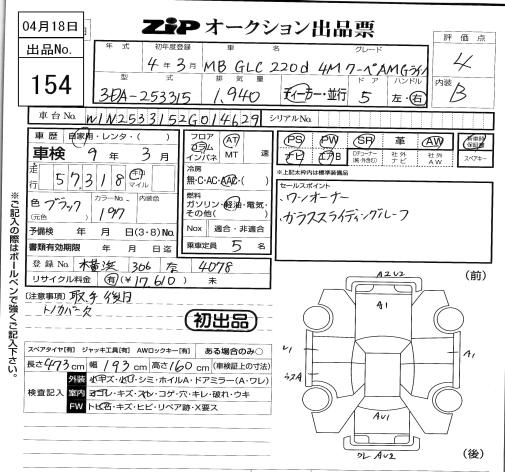 04月18日
ZIP オークション出品票
出品No.
154
評価点
4
内装
B
年式 初年度登録 車名 グレード
4年3月 MB GLC 220d 4M クーペAMGライン
型式 排気量 ドア ハンドル
3DA-253315 1,940 ディーラー・並行 5 左・右
車台No. W1N2533152G014629 シリアルNo.
車歴 自家用・レンタ・( )
車検 9年3月
走行 57,318 km マイル
色 ブラック (元色) カラーNo. 197 内装色
予備検 年 月 日(3・8)No.
書類有効期限 年 月 日迄
登録No. 横浜 306 な 4078
リサイクル料金 有(¥17,610) 未
フロア コラム インパネ AT MT 速
冷房 無・C・AC・AAC・( )
燃料 ガソリン・軽油・電気・その他( )
Nox 適合・非適合
乗車定員 5 名
PS PW SR 革 AW
ナビ エアB DFコーナー(純・外含む) 社外ナビ 社外AW
新車時保証書 スペアキー
※上記太枠内は標準装備品
セールスポイント
・ワンオーナー
・ガラススライディングルーフ
[注意事項] 取手後日
初出品
スペアタイヤ[有] ジャッキ工具[有] AWロックキー[有] ある場合のみ○
長さ473cm 幅193cm 高さ160cm (車検証上の寸法)
検査記入
外装 小キズ・小凹・シミ・ホイルA・ドアミラー(A・ワレ)
室内 ヨゴレ・キズ・スレ・コゲ・穴・キレ・破れ・ウキ
FW トビ石・キズ・ヒビ・リペア跡・X要ス
※ご記入の際はボールペンで強くご記入下さい。
(前)
A2 U2
A1
U1
A1
AU1
AU2
(後)